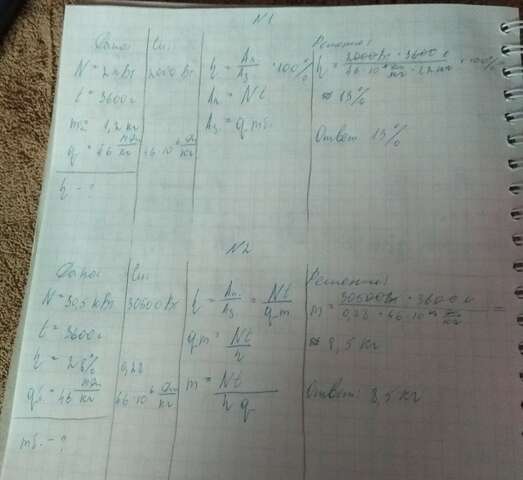 N1
Дано:
N = 2 кВт
t = 3600 с
mб = 1,2 кг
q = 46 МДж/кг
η - ?
Си:
2000 Вт
46·10⁶ Дж/кг
η = Aп/Aз · 100%
Aп = Nt
Aз = q mб.
Решение:
η = 2000Вт · 3600 с / 46·10⁶ Дж/кг · 1,2 кг · 100%
≈ 13%
Ответ 13%
N2
Дано:
N = 30,5 кВт
t = 3600 с
η = 28%
qб. = 46 МДж/кг
mб. - ?
Си:
30500 Вт
0,28
46·10⁶ Дж/кг
η = Aп./Aз = Nt/q m
q m = Nt/η
m = Nt/η q
Решение:
m = 30500Вт · 3600 с / 0,28 · 46·10⁶ Дж/кг =
≈ 8,5 кг
Ответ: 8,5 кг